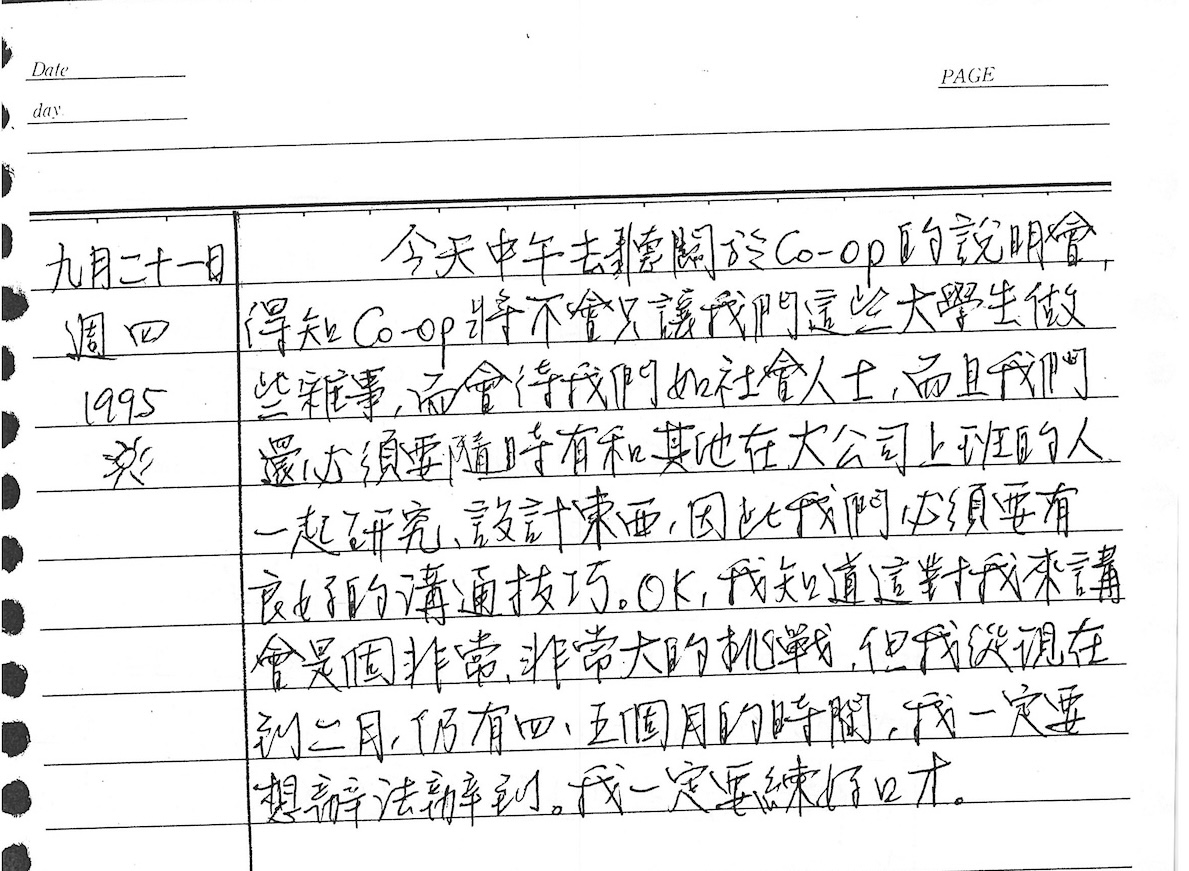 Date
PAGE
day.
九月二十一日
週四
1995
今天中午去聽關於Co-op的說明會,
得知Co-op將不會只讓我們這些大學生做
些雜事,而會待我們如社會人士,而且我們
還必須要隨時有和其他在大公司上班的人
一起研究、設計東西,因此我們必須要有
良好的溝通技巧。OK,我知道這對我來講
會是個非常、非常大的挑戰,但我從現在
到二月,仍有四、五個月的時間,我一定要
想辦法辦到。我一定要練好口才。